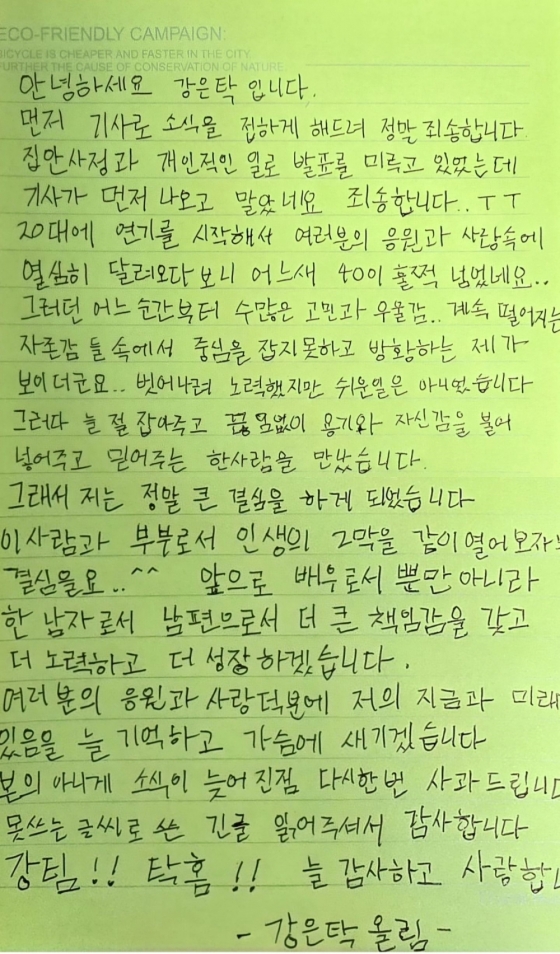 ECO-FRIENDLY CAMPAIGN:
BICYCLE IS CHEAPER AND FASTER IN THE CITY
FURTHER THE CAUSE OF CONSERVATION OF NATURE
안녕하세요 강은탁 입니다.
먼저 기사로 소식을 접하게 해드려 정말 죄송합니다
집안사정과 개인적인 일로 발표를 미루고 있었는데
기사가 먼저 나오고 말았네요 죄송합니다..ㅜㅜ
20대에 연기를 시작해서 여러분의 응원과 사랑속에
열심히 달려오다보니 어느새 40이 훌쩍 넘었네요..
그러던 어느 순간부터 수많은 고민과 우울감.. 계속 떨어지는
자존감 들 속에서 중심을 잡지못하고 방황하는 제가
보이더군요.. 벗어나려 노력했지만 쉬운일은 아니었습니다
그러다 늘 절 잡아주고 끊임없이 용기와 자신감을 불어
넣어주고 믿어주는 한사람을 만났습니다.
그래서 저는 정말 큰 결심을 하게 되었습니다
이사람과 부부로서 인생의 2막을 같이 열어보자는
결심을요..^^ 앞으로 배우로서 뿐만 아니라
한 남자로서 남편으로서 더 큰 책임감을 갖고
더 노력하고 더 성장하겠습니다.
여러분의 응원과 사랑덕분에 저의 지금과 미래
있음을 늘 기억하고 가슴에 새기겠습니다
본의 아니게 소식이 늦어진점 다시한번 사과드립니다
못쓰는 글씨로 쓴 긴글 읽어주셔서 감사합니다
강팀!! 탁홈!! 늘 감사하고 사랑합니
- 강은탁 올림 -